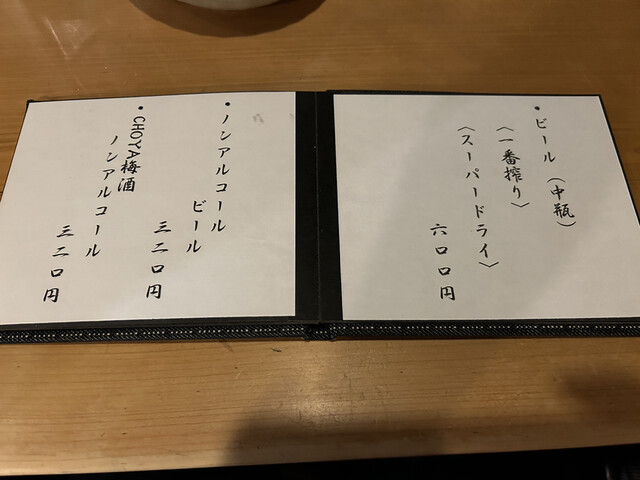 • ビール（中瓶）
〈一番搾り〉
〈スーパードライ〉
六〇〇円
• ノンアルコール
ビール
三二〇円
• CHOYA梅酒
ノンアルコール
三二〇円